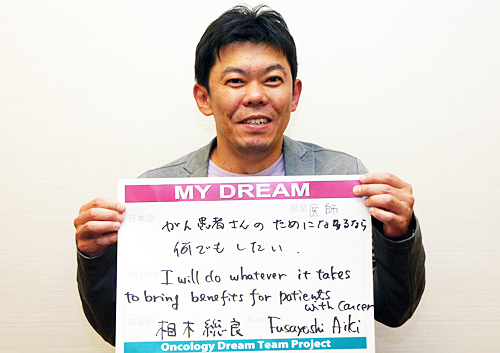 MY DREAM
日本語 職業 医師
がん患者さんのためになるなら
何でもしたい.
English
I will do whatever it takes
to bring benefits for patients
with cancer
お名前 相木総良 Name Fusayoshi Aiki
Oncology Dream Team Project